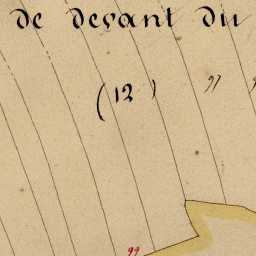 de devant du
(12)
99